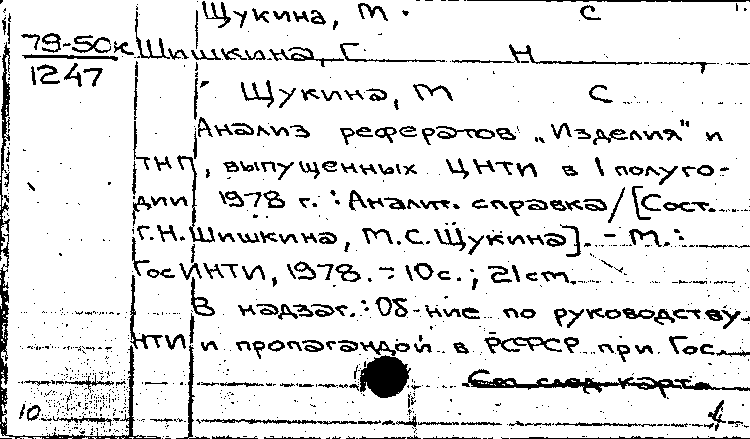 Щукина, М. С
79-50к Шишкина, Г Н
1247
Щукина, М С
Анализ рефератов „Изделия" и
ТНП, выпущенных ЦНТИ в I полуго-
дии 1978 г. : Аналит. справка/[Сост.
Г.Н. Шишкина, М.С. Щукина]. - М.:
ГосИНТИ, 1978. - 10с.; 21см.
В надзаг.: Об-ние по руководству
НТИ и пропагандой в РСФСР при Гос.
См след. карт.
10